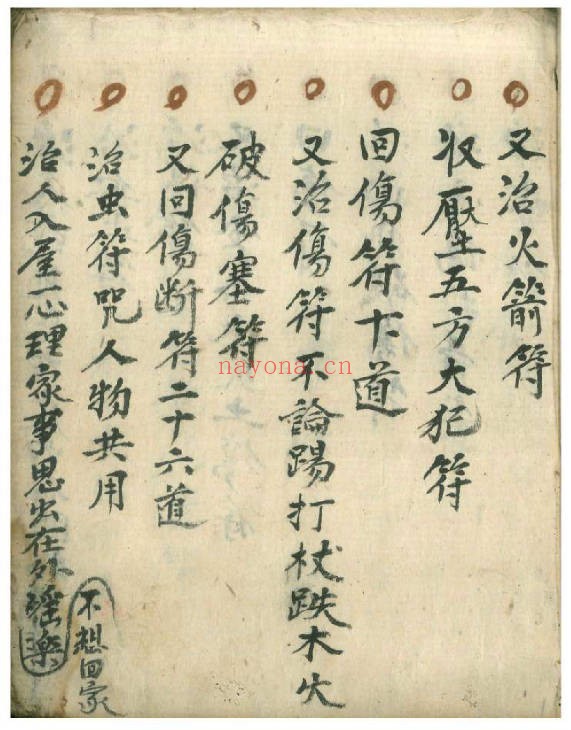 又治火箭符
收壓五方大犯符
回傷符十道
又治傷符不論踢打杖跌木火
破傷塞符
又回傷断符二十六道
治虫符咒人物共用
治人入屋一心理家事思出在外瑶樂
不想回家
nayona.cn